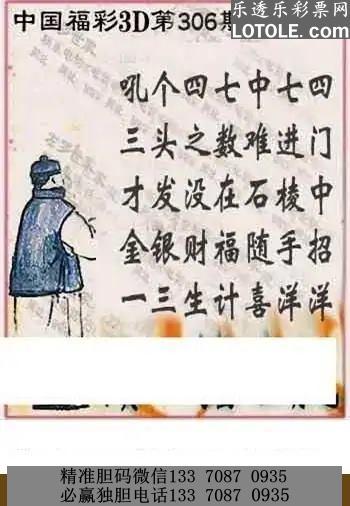 乐透乐彩票网
中国福彩3D第306期
LOTOLE.COM
吼个四七中七四
三头之数难进门
才发没在石棱中
金银财福随手招
一三生计喜洋洋
精准胆码微信133 7087 0935
必赢独胆电话133 7087 0935